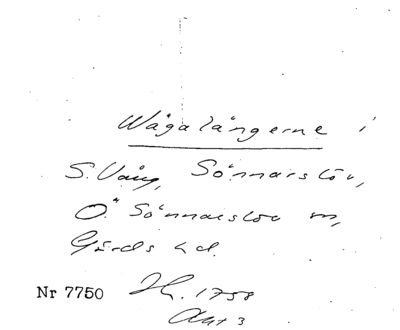 Wågalångerne i
S. Vång, Sönnarslöv,
Ö. Sönnarslöv m,
Gärds hd.
Nr 7750 H. 1758
Akt 3